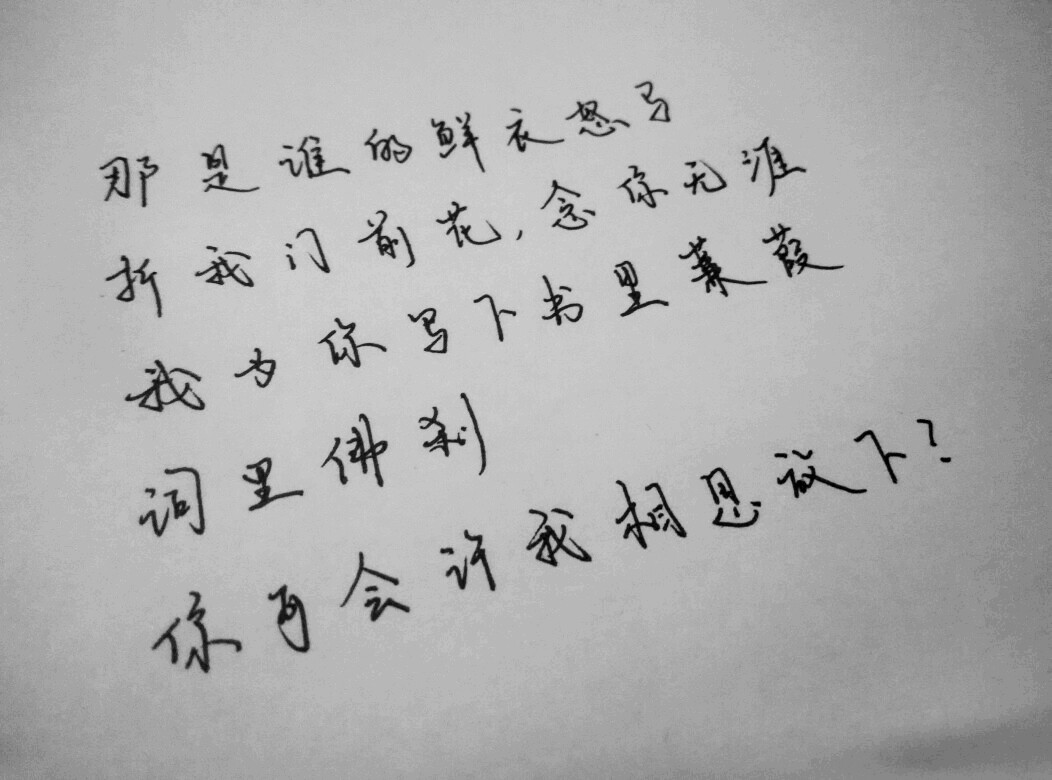 那是谁的鲜衣怒马
折我门前花,念你无涯
我为你写下书里蒹葭
词里佛刹
你可会许我相思放下?